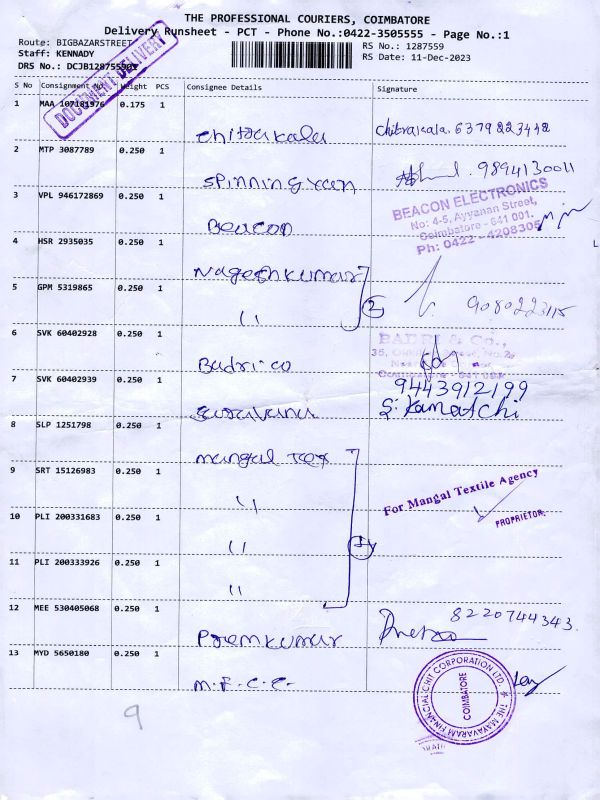 THE PROFESSIONAL COURIERS, COIMBATORE
Delivery Runsheet - PCT - Phone No.:0422-3505555 - Page No.:1
Route: BIGBAZARSTREET
RS No.: 1287559
Staff: KENNADY
RS Date: 11-Dec-2023
DRS No.: DCJB128755901
DOCUMENT DELIVERY
S No Consignment No. Weight PCS Consignee Details Signature
1 MAA 107181976 0.175 1
chitrakala chitrakala. 6379223442
2 MTP 3087789 0.250 1
spinning 9894130011
3 VPL 946172869 0.250 1
Beacon
BEACON ELECTRONICS
No: 4-5, Ayyanan Street,
Coimbatore - 641 001.
Ph: 0422 - 4208305
4 HSR 2935035 0.250 1
Nageshkumar
5 GPM 5319865 0.250 1
11 2 9080223115
6 SVK 60402928 0.250 1
Badri.co
BADRI & Co.,
35,
7 SVK 60402939 0.250 1
9443912199
S. Kamatchi
8 SLP 1251798 0.250 1
mangal Tex
9 SRT 15126983 0.250 1
11
For Mangal Textile Agency
PROPRIETOR.
10 PLI 200331683 0.250 1
11
11 PLI 200333926 0.250 1
11
12 MEE 530405068 0.250 1
Premkumar 8220744343.
13 MYD 5650180 0.250 1
m.F.C.C.
THE MAYAVARAM FINANCIAL CHIT CORPORATION LTD.
COIMBATORE
9